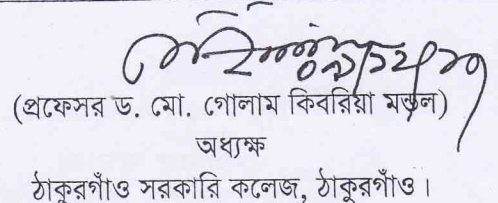 (প্রফেসর ড. মো. গোলাম কিবরিয়া মন্ডল)
অধ্যক্ষ
ঠাকুরগাঁও সরকারি কলেজ, ঠাকুরগাঁও।